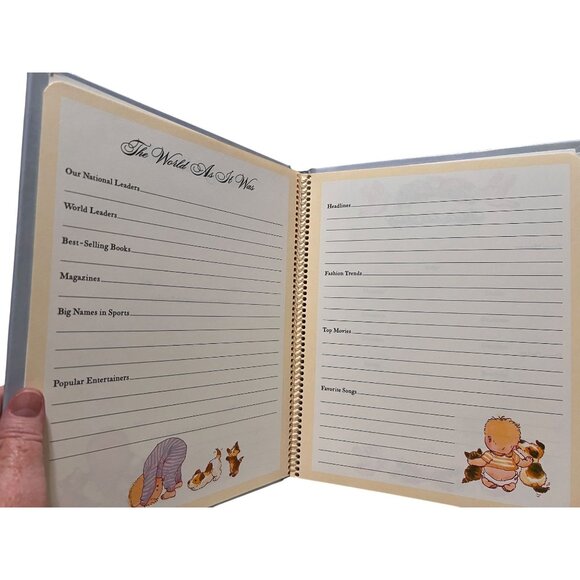 The World As It Was
Our National Leaders
World Leaders
Best-Selling Books
Magazines
Big Names in Sports
Popular Entertainers
Headlines
Fashion Trends
Top Movies
Favorite Songs